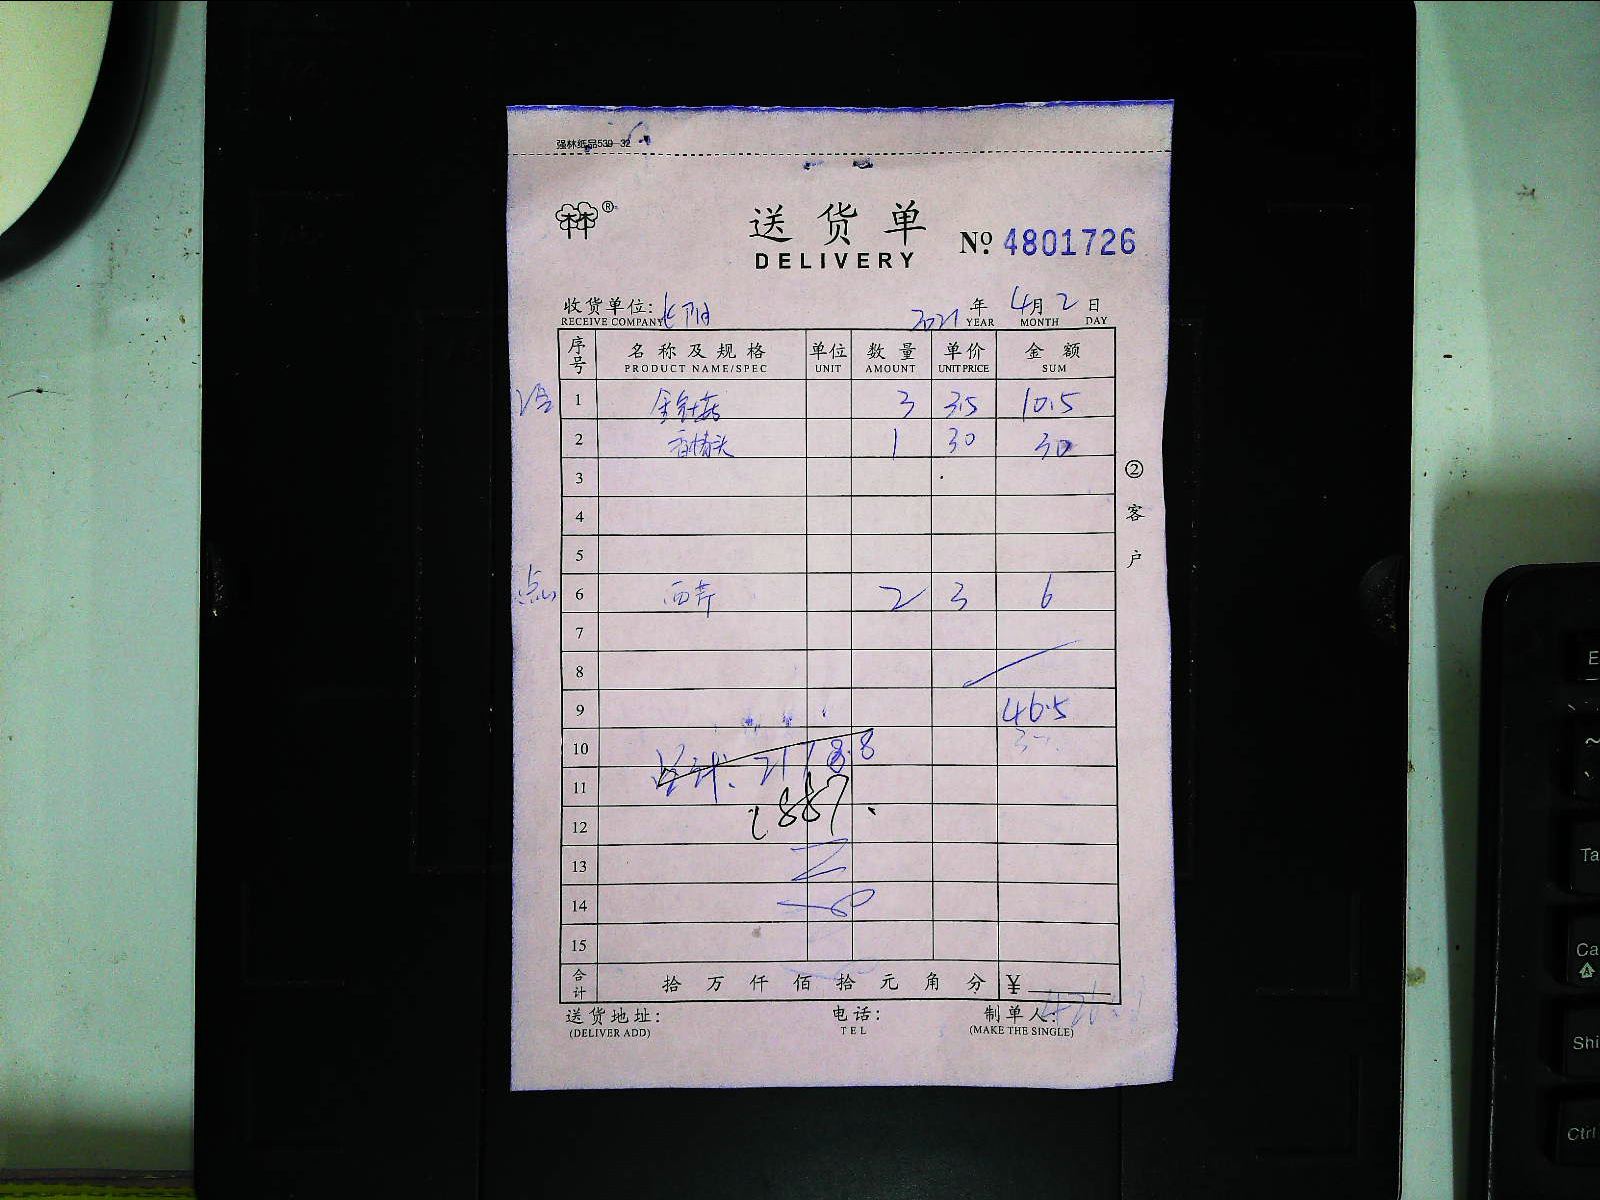 强林纸品530-32
林®
送货单
DELIVERY
№ 4801726
收货单位: 长阳 2021年4月2日
RECEIVE COMPANY YEAR MONTH DAY
序号 名称及规格 单位 数量 单价 金额
PRODUCT NAME/SPEC UNIT AMOUNT UNIT PRICE SUM
1 金针菇 3 3.5 10.5
2 1 30 30
3
4
5
点心 6 西芹 2 3 6
7
8
9 46.5
10
总计: 2118.8
11
1887.
12
13
14
15
②客户
合计 拾 万 仟 佰 拾 元 角 分 ¥
送货地址: 电话: 制单人:
(DELIVER ADD) TEL (MAKE THE SINGLE)
E
~
Ta
Ca
Shi
Ctrl